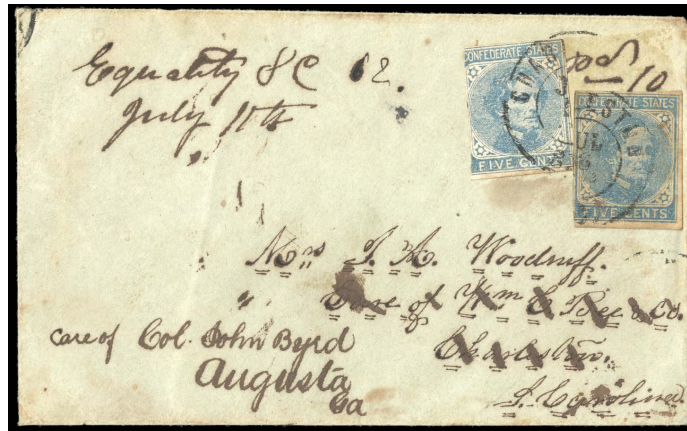 Equality SC 62.
July 11th
pd
10
CONFEDERATE STATES
FIVE CENTS
CONFEDERATE STATES
FIVE CENTS
JUL
Mrs J. A. Woodruff.
" Care of Wm C Bee & Co.
Charleston.
S. Carolina.
care of Col. John Byrd
Augusta
Ga